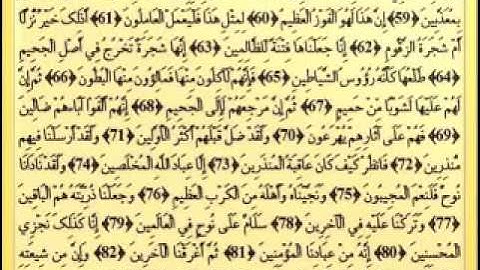 بِمُعَذَّبِينَ ﴿59﴾ إِنَّ هَذَا لَهُوَ الْفَوْزُ الْعَظِيمُ ﴿60﴾ لِمِثْلِ هَذَا فَلْيَعْمَلِ الْعَامِلُونَ ﴿61﴾ أَذَلِكَ خَيْرٌ نُّزُلًا
أَمْ شَجَرَةُ الزَّقُّومِ ﴿62﴾ إِنَّا جَعَلْنَاهَا فِتْنَةً لِّلظَّالِمِينَ ﴿63﴾ إِنَّهَا شَجَرَةٌ تَخْرُجُ فِي أَصْلِ الْجَحِيمِ
﴿64﴾ طَلْعُهَا كَأَنَّهُ رُؤُوسُ الشَّيَاطِينِ ﴿65﴾ فَإِنَّهُمْ لَآكِلُونَ مِنْهَا فَمَالِؤُونَ مِنْهَا الْبُطُونَ ﴿66﴾ ثُمَّ إِنَّ
لَهُمْ عَلَيْهَا لَشَوْبًا مِّنْ حَمِيمٍ ﴿67﴾ ثُمَّ إِنَّ مَرْجِعَهُمْ لَإِلَى الْجَحِيمِ ﴿68﴾ إِنَّهُمْ أَلْفَوْا آبَاءهُمْ ضَالِّينَ
﴿69﴾ فَهُمْ عَلَى آثَارِهِمْ يُهْرَعُونَ ﴿70﴾ وَلَقَدْ ضَلَّ قَبْلَهُمْ أَكْثَرُ الْأَوَّلِينَ ﴿71﴾ وَلَقَدْ أَرْسَلْنَا فِيهِم
مُّنذِرِينَ ﴿72﴾ فَانظُرْ كَيْفَ كَانَ عَاقِبَةُ الْمُنذَرِينَ ﴿73﴾ إِلَّا عِبَادَ اللَّهِ الْمُخْلَصِينَ ﴿74﴾ وَلَقَدْ نَادَانَا
نُوحٌ فَلَنِعْمَ الْمُجِيبُونَ ﴿75﴾ وَنَجَّيْنَاهُ وَأَهْلَهُ مِنَ الْكَرْبِ الْعَظِيمِ ﴿76﴾ وَجَعَلْنَا ذُرِّيَّتَهُ هُمْ الْبَاقِينَ
﴿77﴾ وَتَرَكْنَا عَلَيْهِ فِي الْآخِرِينَ ﴿78﴾ سَلَامٌ عَلَى نُوحٍ فِي الْعَالَمِينَ ﴿79﴾ إِنَّا كَذَلِكَ نَجْزِي
الْمُحْسِنِينَ ﴿80﴾ إِنَّهُ مِنْ عِبَادِنَا الْمُؤْمِنِينَ ﴿81﴾ ثُمَّ أَغْرَقْنَا الْآخَرِينَ ﴿82﴾ وَإِنَّ مِن شِيعَتِهِ